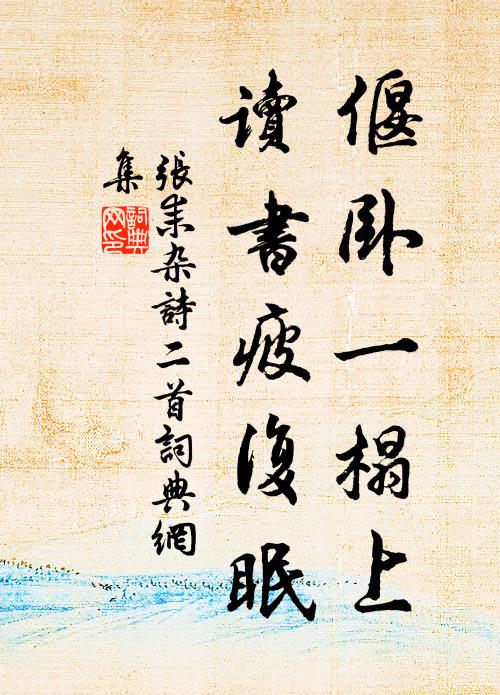 偃卧一榻上
讀書疲復眠
張耒杂詩二首詞典網
集
詞典
网印